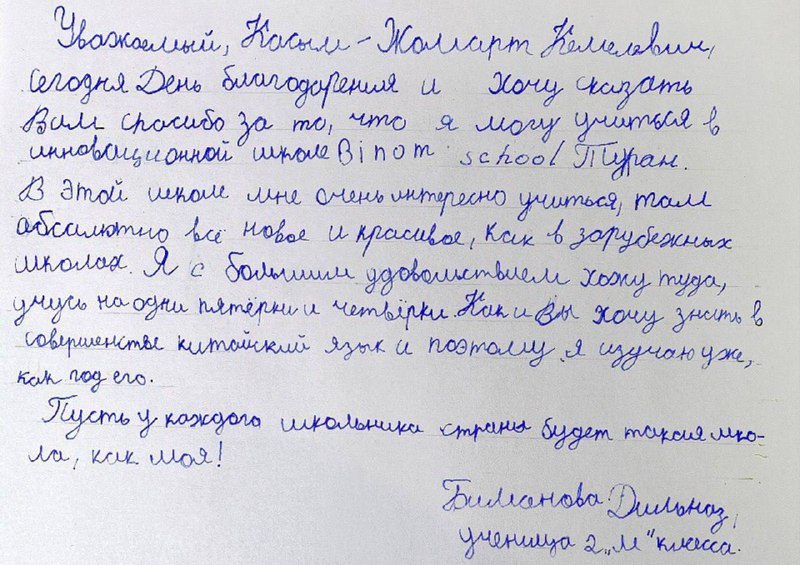 Уважаемый, Касым - Жомарт Кемелевич,
сегодня День благодарения и хочу сказать
Вам спасибо за то, что я могу учиться в
инновационной школе Binom school Туран.
В этой школе мне очень интересно учиться, там
абсалютно всё новое и красивое, как в зарубежных
школах. Я с большим удовольствием хожу туда,
учусь на одни пятёрки и четвёрки. Как и Вы хочу знать в
совершенстве китайский язык и поэтому я изучаю уже,
как год его.
Пусть у каждого школьника страны будет такая шко-
ла, как моя!
Биманова Дильназ,
ученица 2 „М" класса.